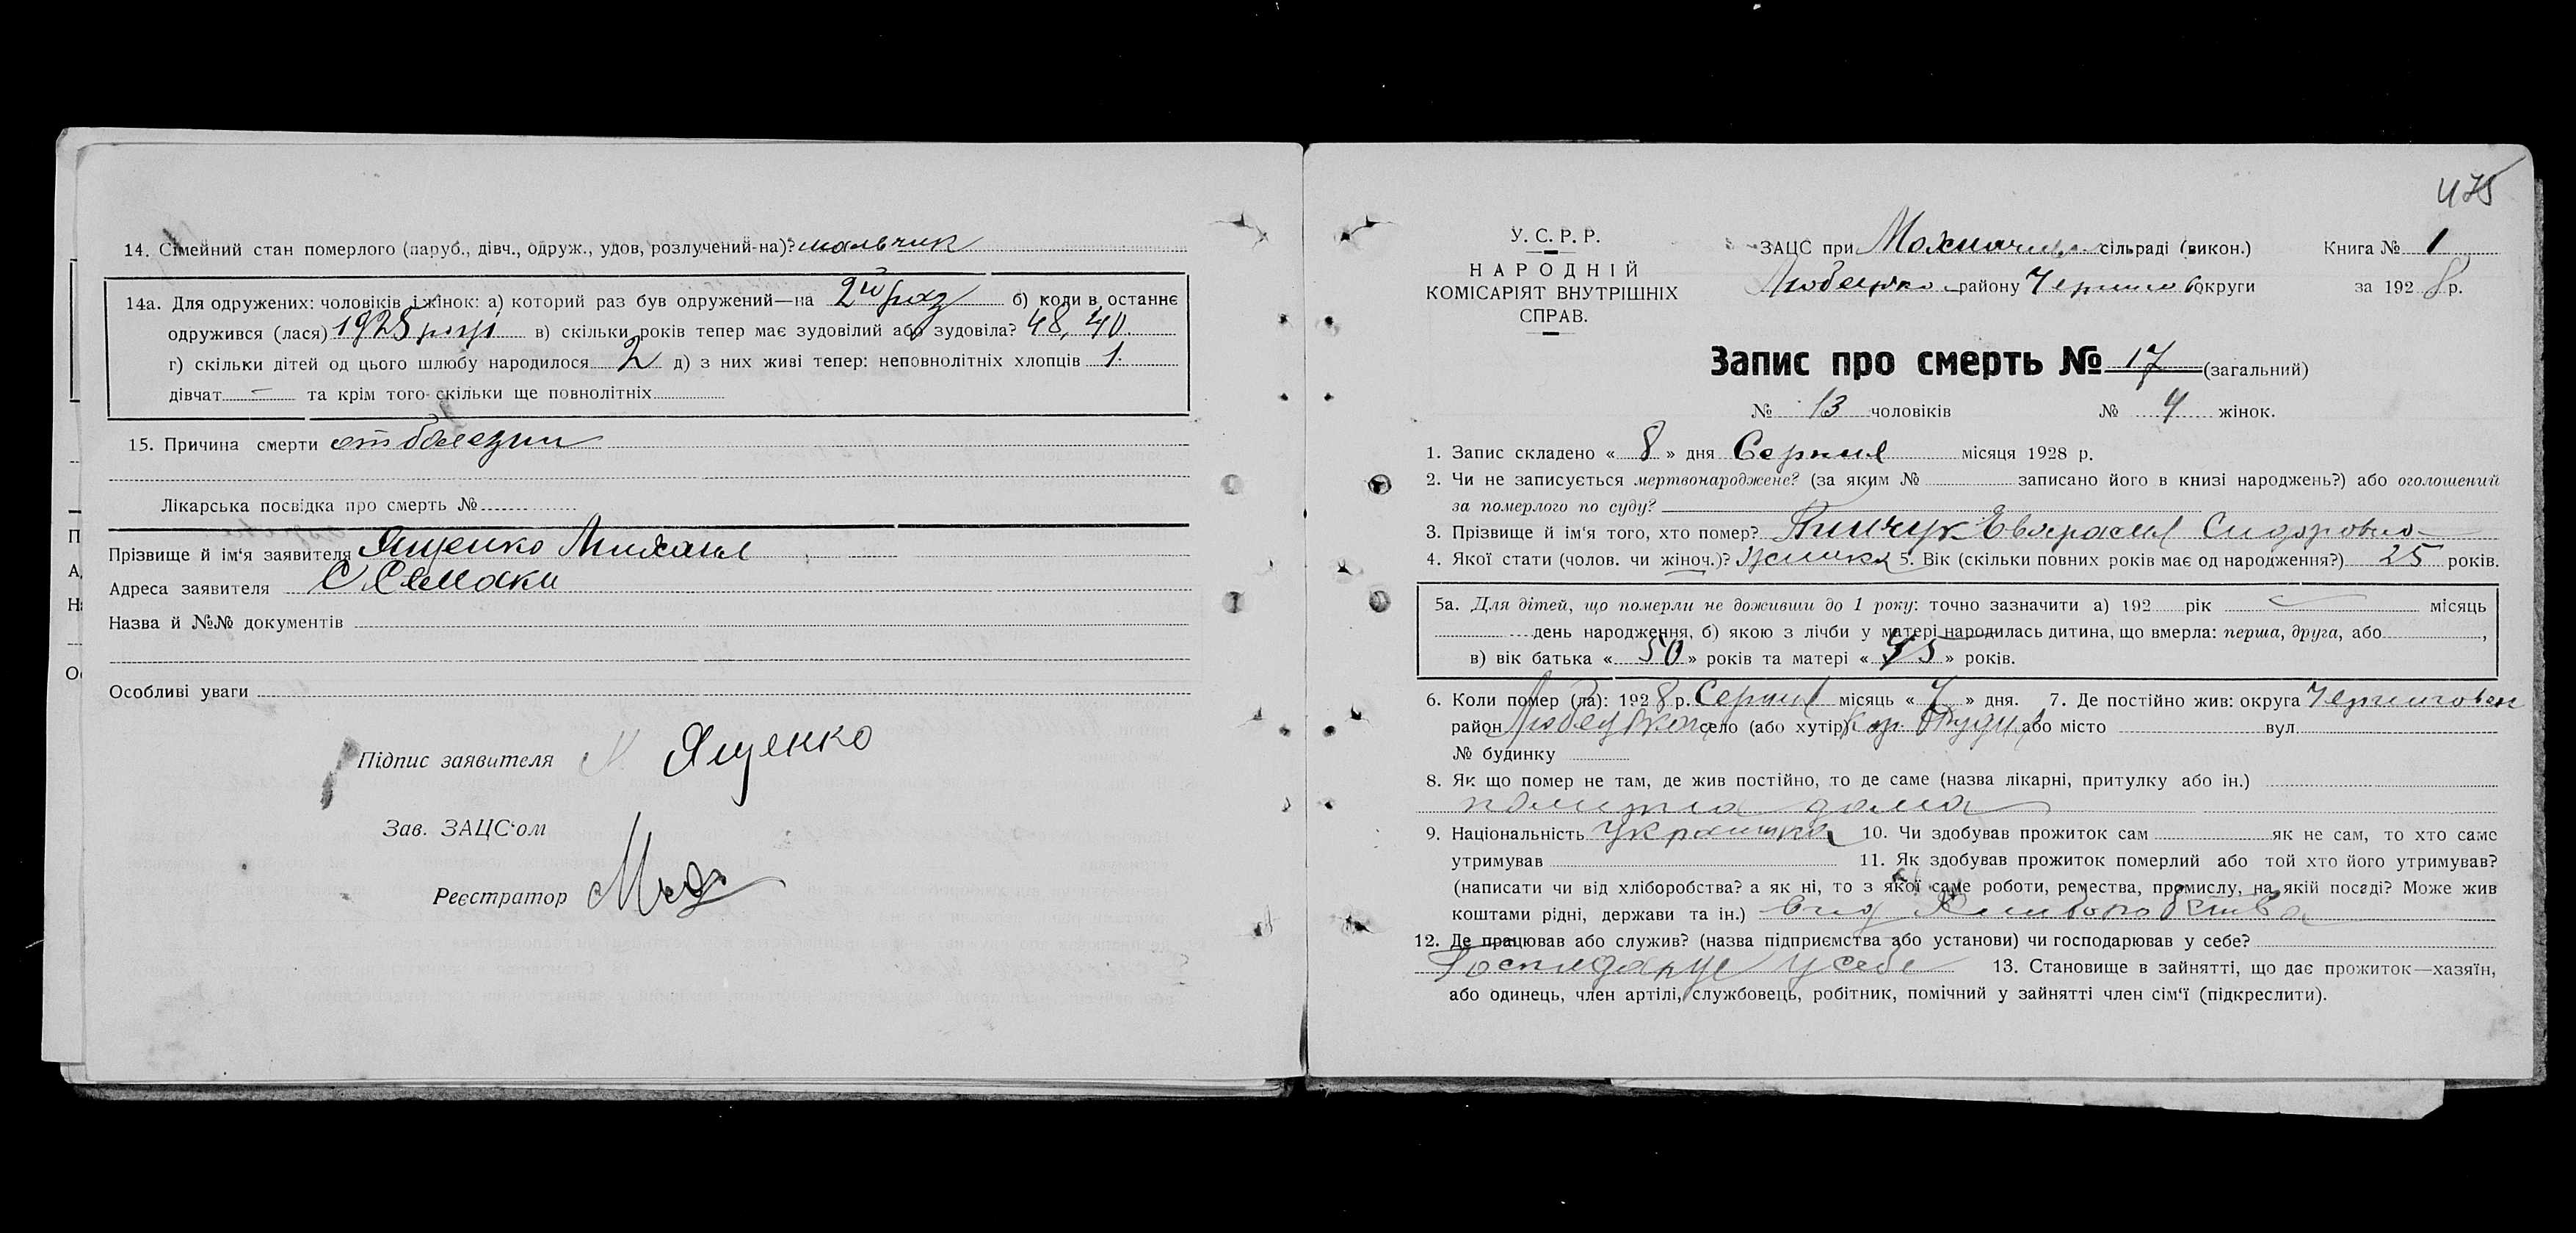 14. Сімейний стан померлого (паруб., дівч., одруж., удов, розлучений-на)? мальчик
14а. Для одружених: чоловіків і жінок: а) которий раз був одружений—на 2й раз б) коли в останнє
одружився (лася) 1925 році в) скільки років тепер має зудовілий або зудовіла? 48, 40.
г) скільки дітей од цього шлюбу народилося 2 д) з них живі тепер: неповнолітніх хлопців 1.
дівчат — та крім того скільки ще повнолітніх
15. Причина смерти от болезни
Лікарська посвідка про смерть №
Прізвище й ім'я заявителя Ященко Михаил
Адреса заявителя С Семаки
Назва й №№ документів
Особливі уваги
Підпис заявителя Ященко
Зав. ЗАЦС'ом
Реєстратор
475
У. С. Р. Р.
НАРОДНІЙ
КОМІСАРІЯТ ВНУТРІШНІХ
СПРАВ.
ЗАЦС при сільраді (викон.) Книга № 1
району округи за 1928 р.
Запис про смерть № 17 (загальний)
№ 13 чоловіків № 4 жінок.
1. Запис складено « 8 » дня Серпня місяця 1928 р.
2. Чи не записується мертвонароджене? (за яким № записано його в книзі народжень?) або оголошений
за померлого по суду?
3. Прізвище й ім'я того, хто помер? Пинчук Сидоровна
4. Якої стати (чолов. чи жіноч.)? 5. Вік (скільки повних років має од народження?) 25 років.
5а. Для дітей, що померли не доживши до 1 року: точно зазначити а) 192 рік місяць
день народження, б) якою з лічби у матері народилась дитина, що вмерла: перша, друга, або ,
в) вік батька « 50 » років та матері « 45 » років.
6. Коли помер (ла): 1928 р. Серпня місяць « 7 » дня. 7. Де постійно жив: округа
район село (або хутір) або місто вул.
№ будинку
8. Як що помер не там, де жив постійно, то де саме (назва лікарні, притулку або ін.)
дома
9. Національність 10. Чи здобував прожиток сам як не сам, то хто саме
утримував 11. Як здобував прожиток померлий або той хто його утримував?
(написати чи від хліборобства? а як ні, то з якої саме роботи, ремества, промислу, на якій посаді? Може жив
коштами рідні, держави та ін.) від хліборобства
12. Де працював або служив? (назва підприємства або установи) чи господарював у себе?
Господарує у себе 13. Становище в зайнятті, що дає прожиток—хазяїн,
або одинець, член артілі, службовець, робітник, помічний у зайнятті член сім'ї (підкреслити).